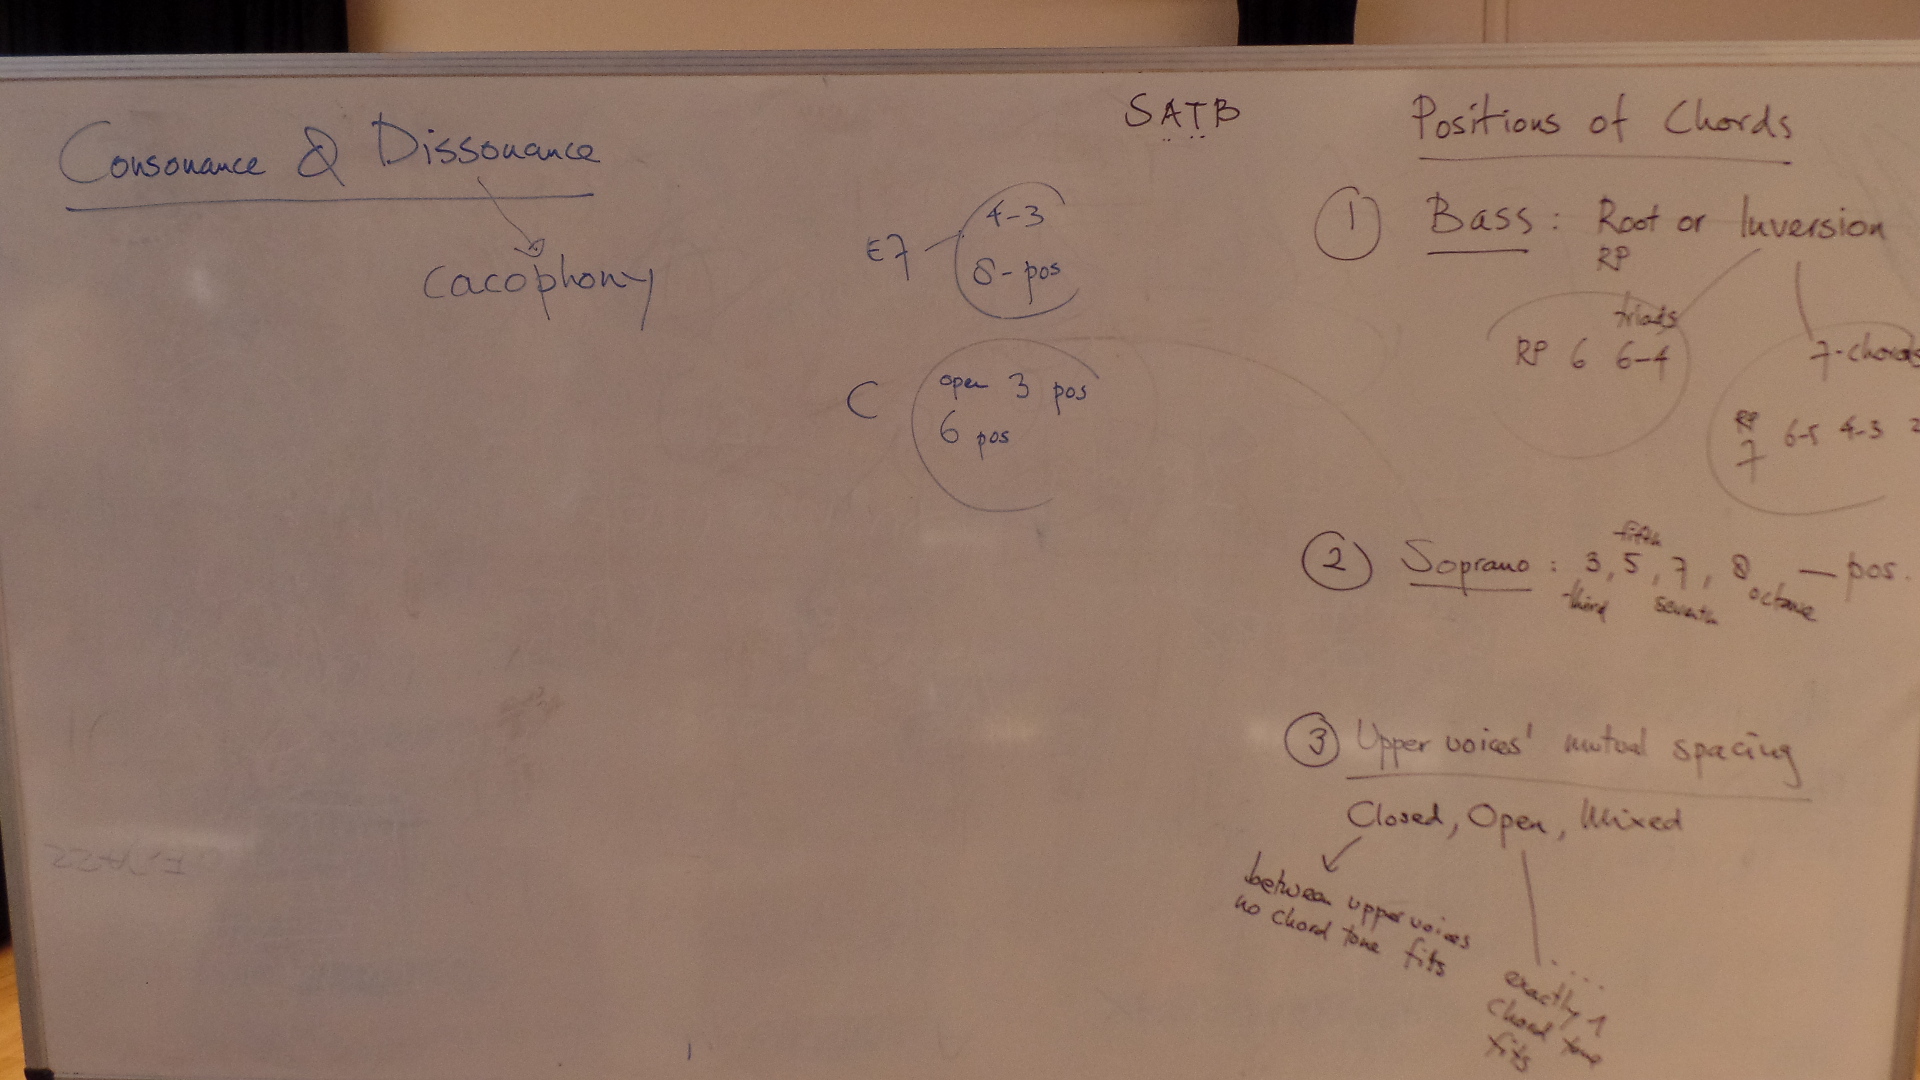 Consonance & Dissonance
cacophony
SATB
E7
4-3
8-pos
C
open 3 pos
6 pos
Positions of Chords
1 Bass: Root or Inversion
RP
triads
RP 6 6-4
7-chords
RP
7 6-5 4-3 2
fifth
2 Soprano: 3, 5, 7, 8 — pos.
third seventh octave
3 Upper voices' mutual spacing
Closed, Open, Mixed
between upper voices
no chord tone fits
...
exactly 1
chord tone
fits